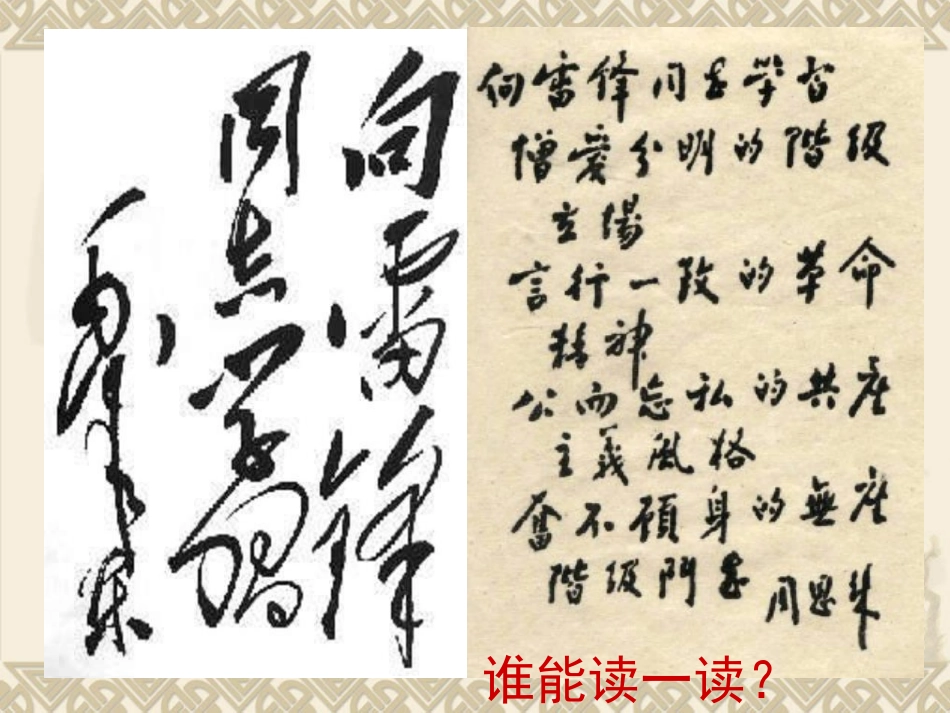 向雷锋
同志学习
毛泽东
向雷锋同志学習
憎爱分明的階级
立場
言行一致的革命
精神
公而忘私的共产
主義風格
奮不顧身的無产
階级鬥志
周恩来
谁能读一读？